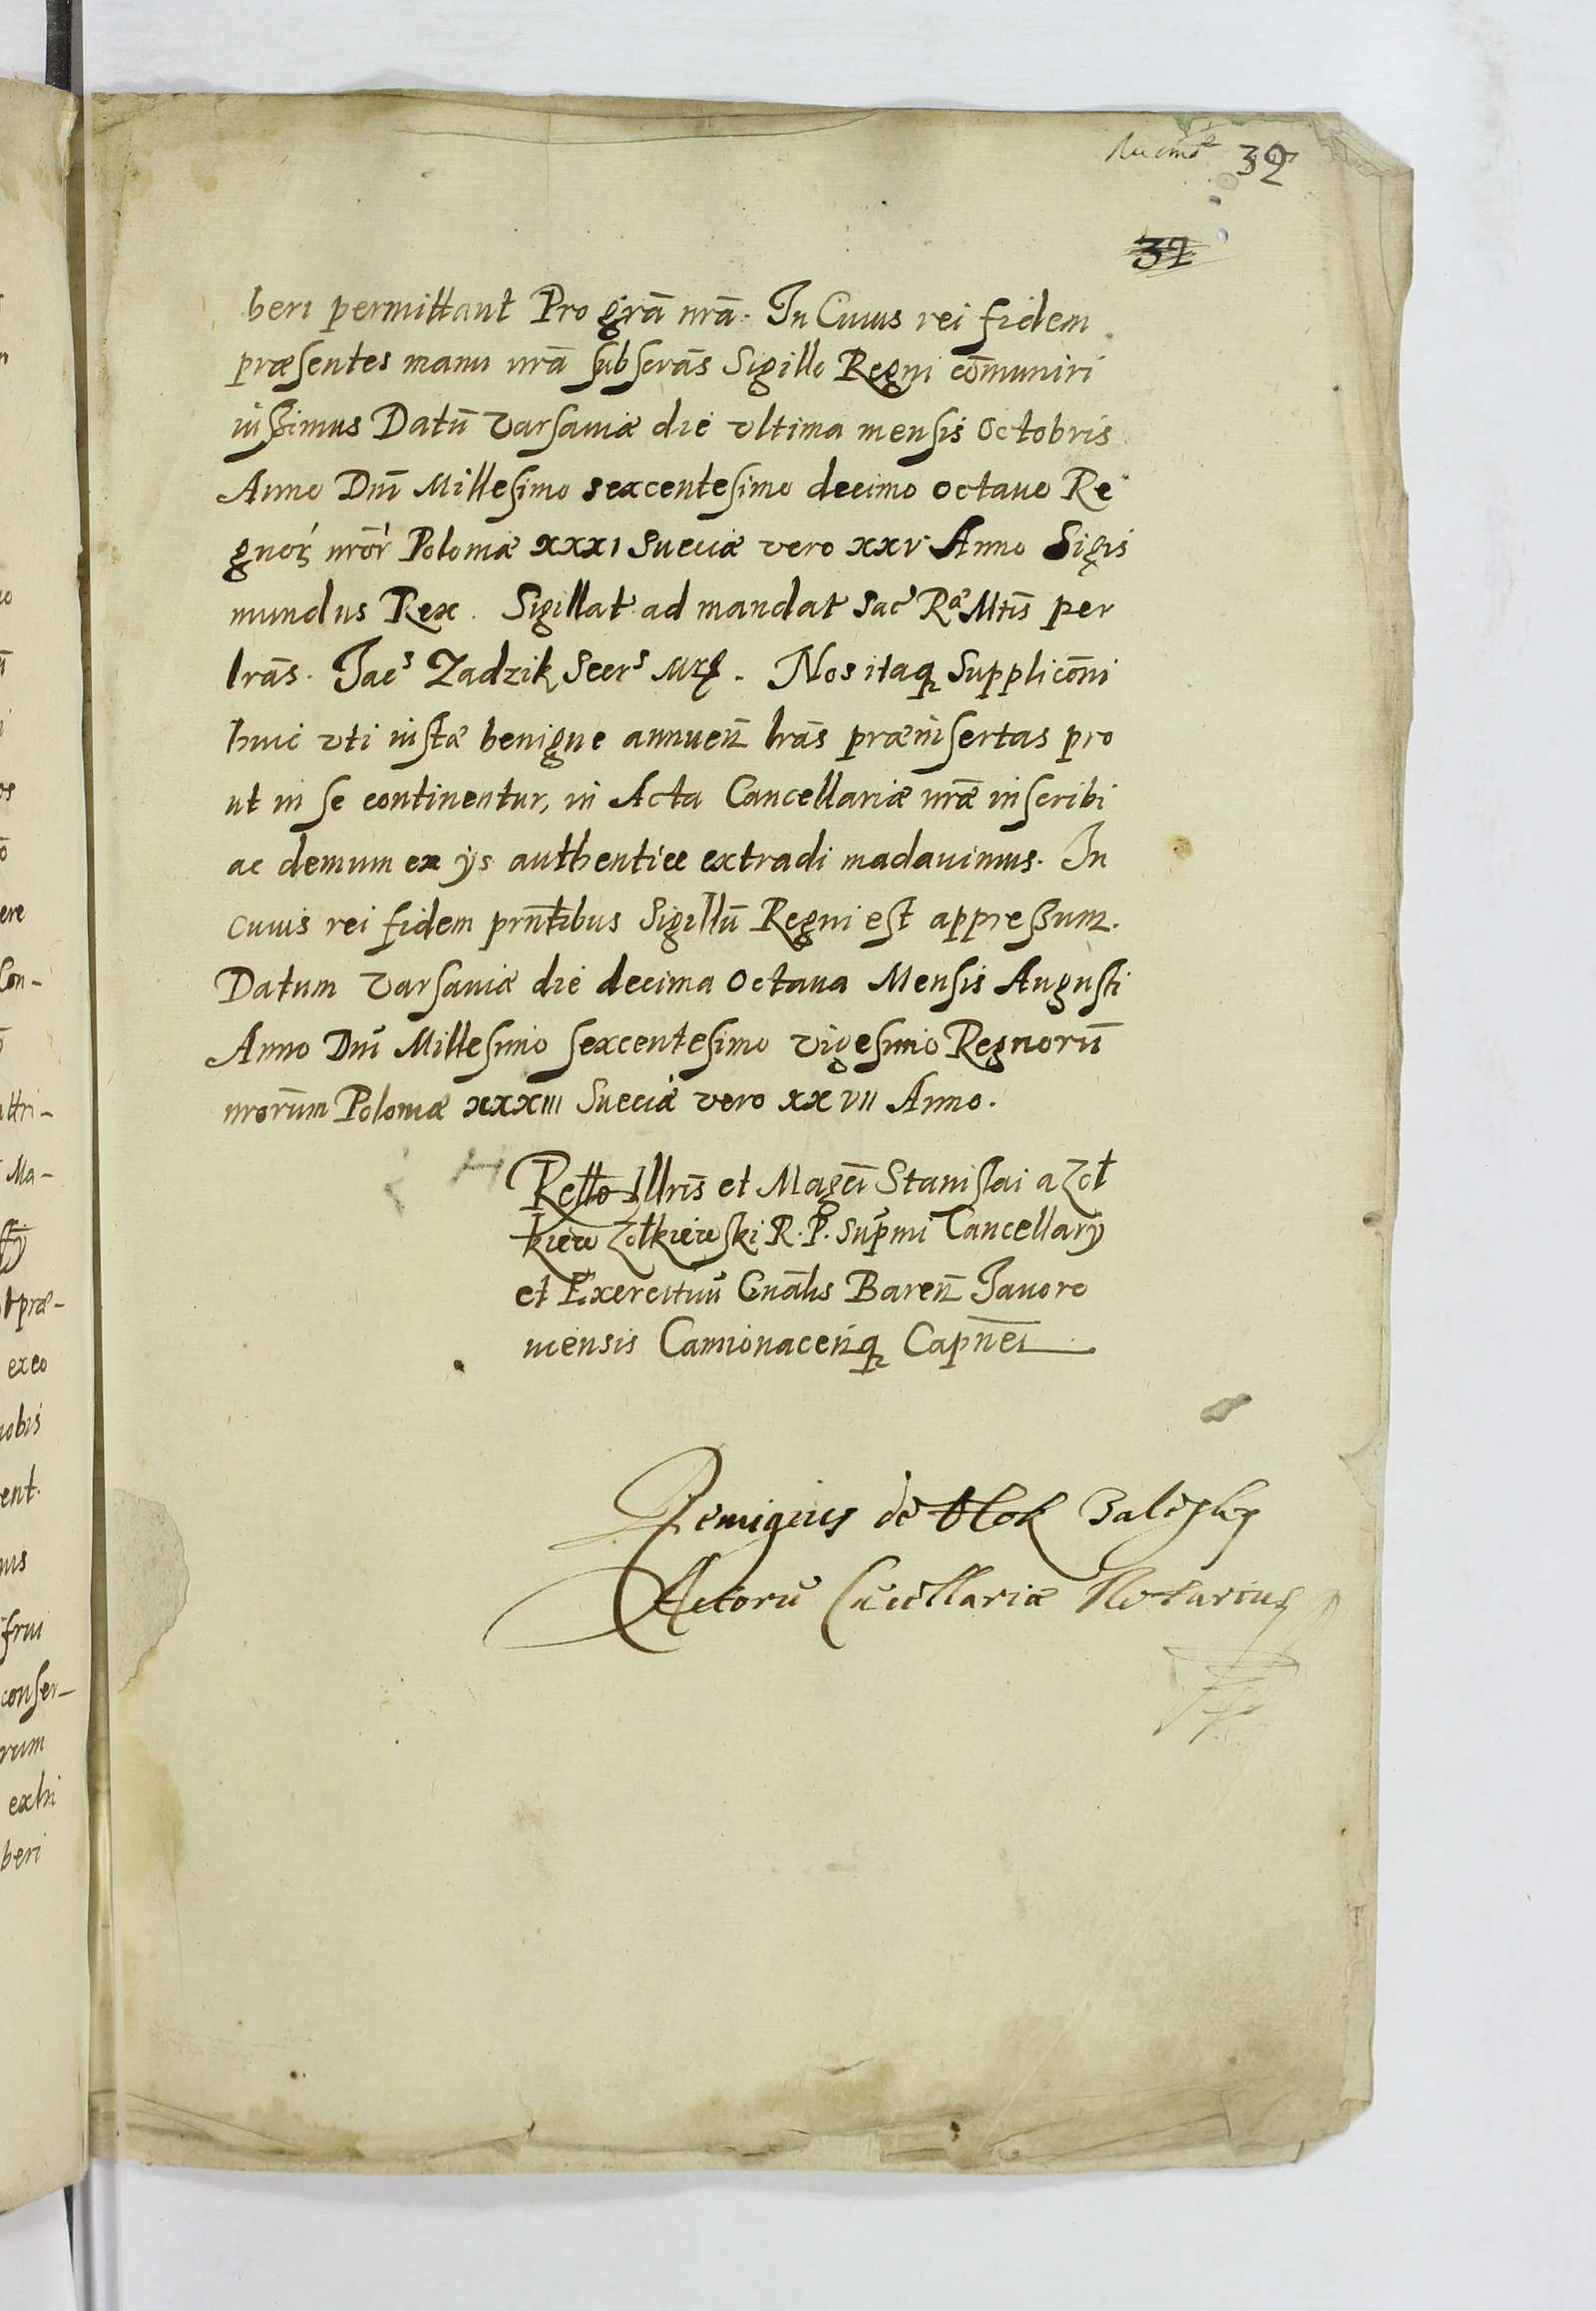 32
32
beri permittant Pro grã nrã. In Cuius rei fidem
præsentes manu nrã subscrãs Sigillo Regni cõmuniri
iussimus Datũ Varsaviæ die ultima mensis Octobris
Anno Dni Millesimo sexcentesimo decimo octavo Re
gnor nror Poloniæ XXXI Sueciæ vero XXV Anno Sigis
mundus Rex. Sigillat ad mandat Sac Ræ Mtis per
lrãs. Jac⁠s Zadzik Secr⁠s Mrg. Nos itaq Supplicõni
huic uti iustæ benigne annuen lrãs præinsertas pro
ut in se continentur, in Acta Cancellariæ nræ inscribi
ac demum ex ijs authentice extradi madavimus. In
cuius rei fidem prñtibus Sigillũ Regni est appressum.
Datum Varsaviæ die decima Octava Mensis Augusti
Anno Dni Millesimo sexcentesimo vigesimo Regnorũ
nrorum Poloniæ XXXIII Sueciæ vero XXVII Anno.
Retto Illris et Magci Stanislai a Żoł
kiew Żołkiewski R. P. Supmi Cancellarij
et Exercituũ Gnãlis Baren Javoro
viensis Camionacenq Capnei
Remigius de Otok Zalesky
Actorũ Cãcellariæ Notarius
ere
Con-
ttri-
Ma-
præ-
exeo
nobis
ent.
frui
conser-
rum
exhi
beri